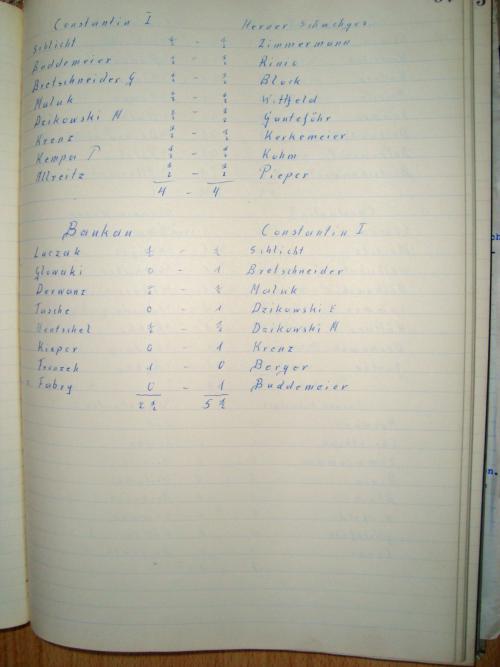 Constantin I Herner Schachges
Schlicht ½ - ½ Zimmermann
Buddemeier ½ - ½ Rinio
Bretschneider G ½ - ½ Block
Maluk ½ - ½ Wittfeld
Dzikowski M ½ - ½ Gunteführ
Krenz ½ - ½ Kerkemeier
Kempa ½ - ½ Kuhm
Allreitz ½ - ½ Pieper
4 - 4
Baukau Constantin I
Luczak ½ - ½ Schlicht
Glowaki 0 - 1 Bretschneider
Derwanz ½ - ½ Maluk
Tasche 0 - 1 Dzikowski E
Hentschel ½ - ½ Dzikowski M
Kieper 0 - 1 Krenz
1 - 0 Berger
Fabry 0 - 1 Buddemeier
2½ 5½